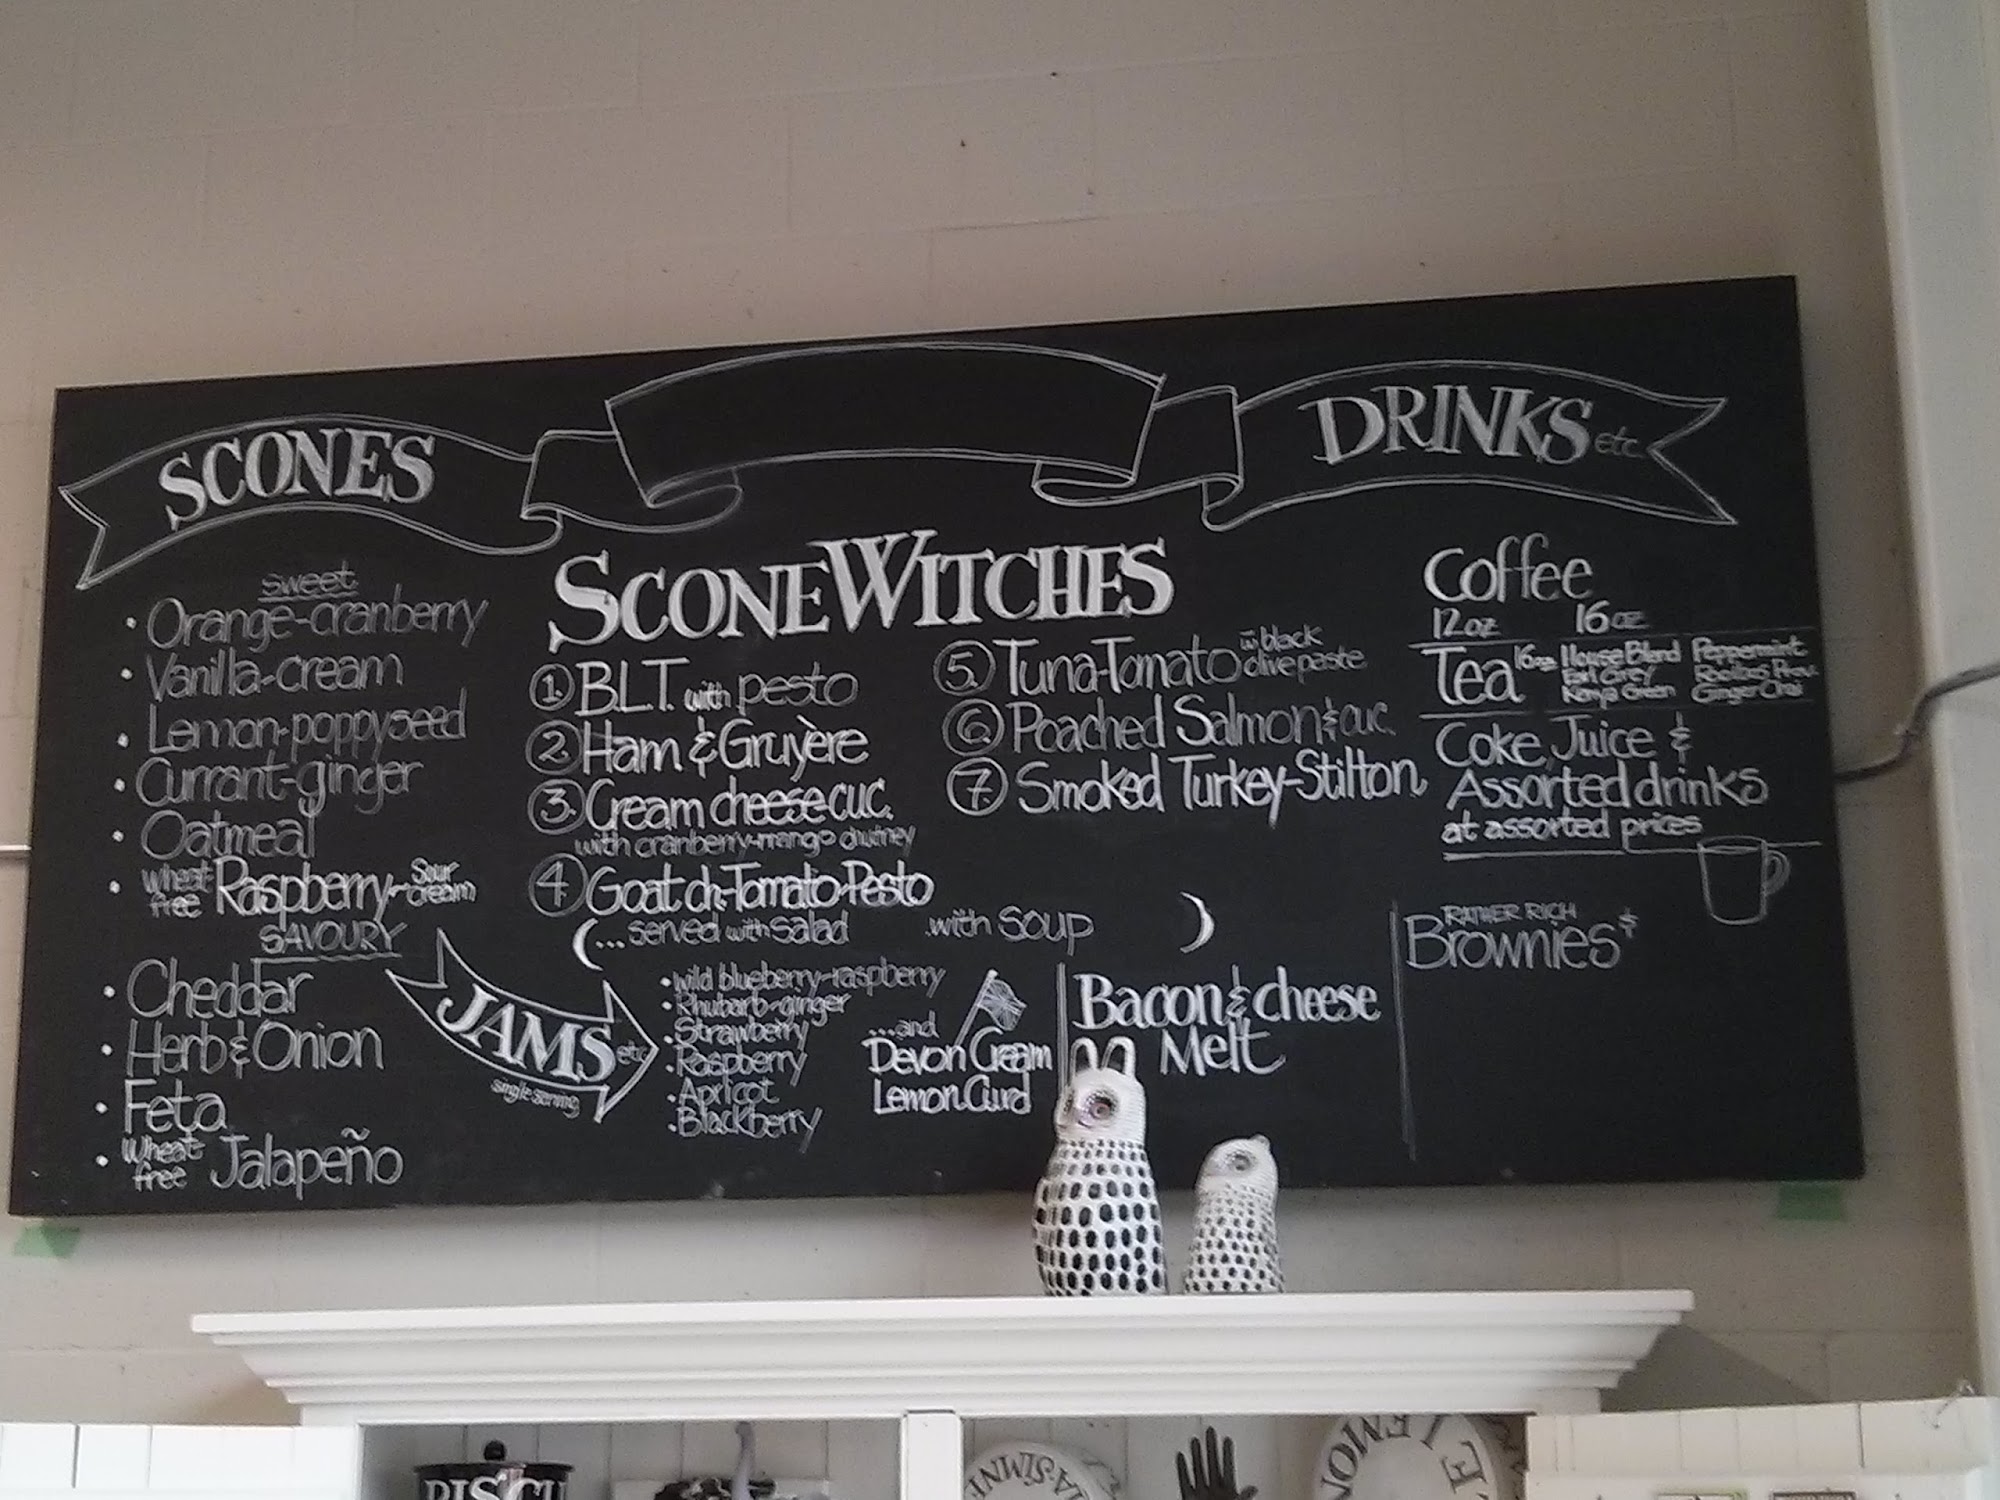 SCONES
sweet
• Orange-cranberry
• Vanilla-cream
• Lemon-poppyseed
• Currant-ginger
• Oatmeal
• wheat free Raspberry-sour cream
SAVOURY
• Cheddar
• Herb & Onion
• Feta
• Wheat free Jalapeño
SCONEWITCHES
1. B.L.T. with pesto
2. Ham & Gruyère
3. Cream cheese cuc.
with cranberry-mango chutney
4. Goat ch-Tomato-Pesto
5. Tuna-Tomato w black olive paste
6. Poached Salmon & cuc.
7. Smoked Turkey-Stilton
...served with salad
with soup
JAMS etc
single serving
• wild blueberry-raspberry
• Rhubarb-ginger
• Strawberry
• Raspberry
• Apricot
• Blackberry
...and
Devon Cream
Lemon Curd
Bacon & cheese
Melt
DRINKS etc.
Coffee
12 oz 16 oz
Tea 16oz
House Blend
Earl Grey
Kenya Green
Peppermint
Rooibos
Ginger Chai
Coke, Juice &
Assorted drinks
at assorted prices
RATHER RICH
BROWNIES
LEMON